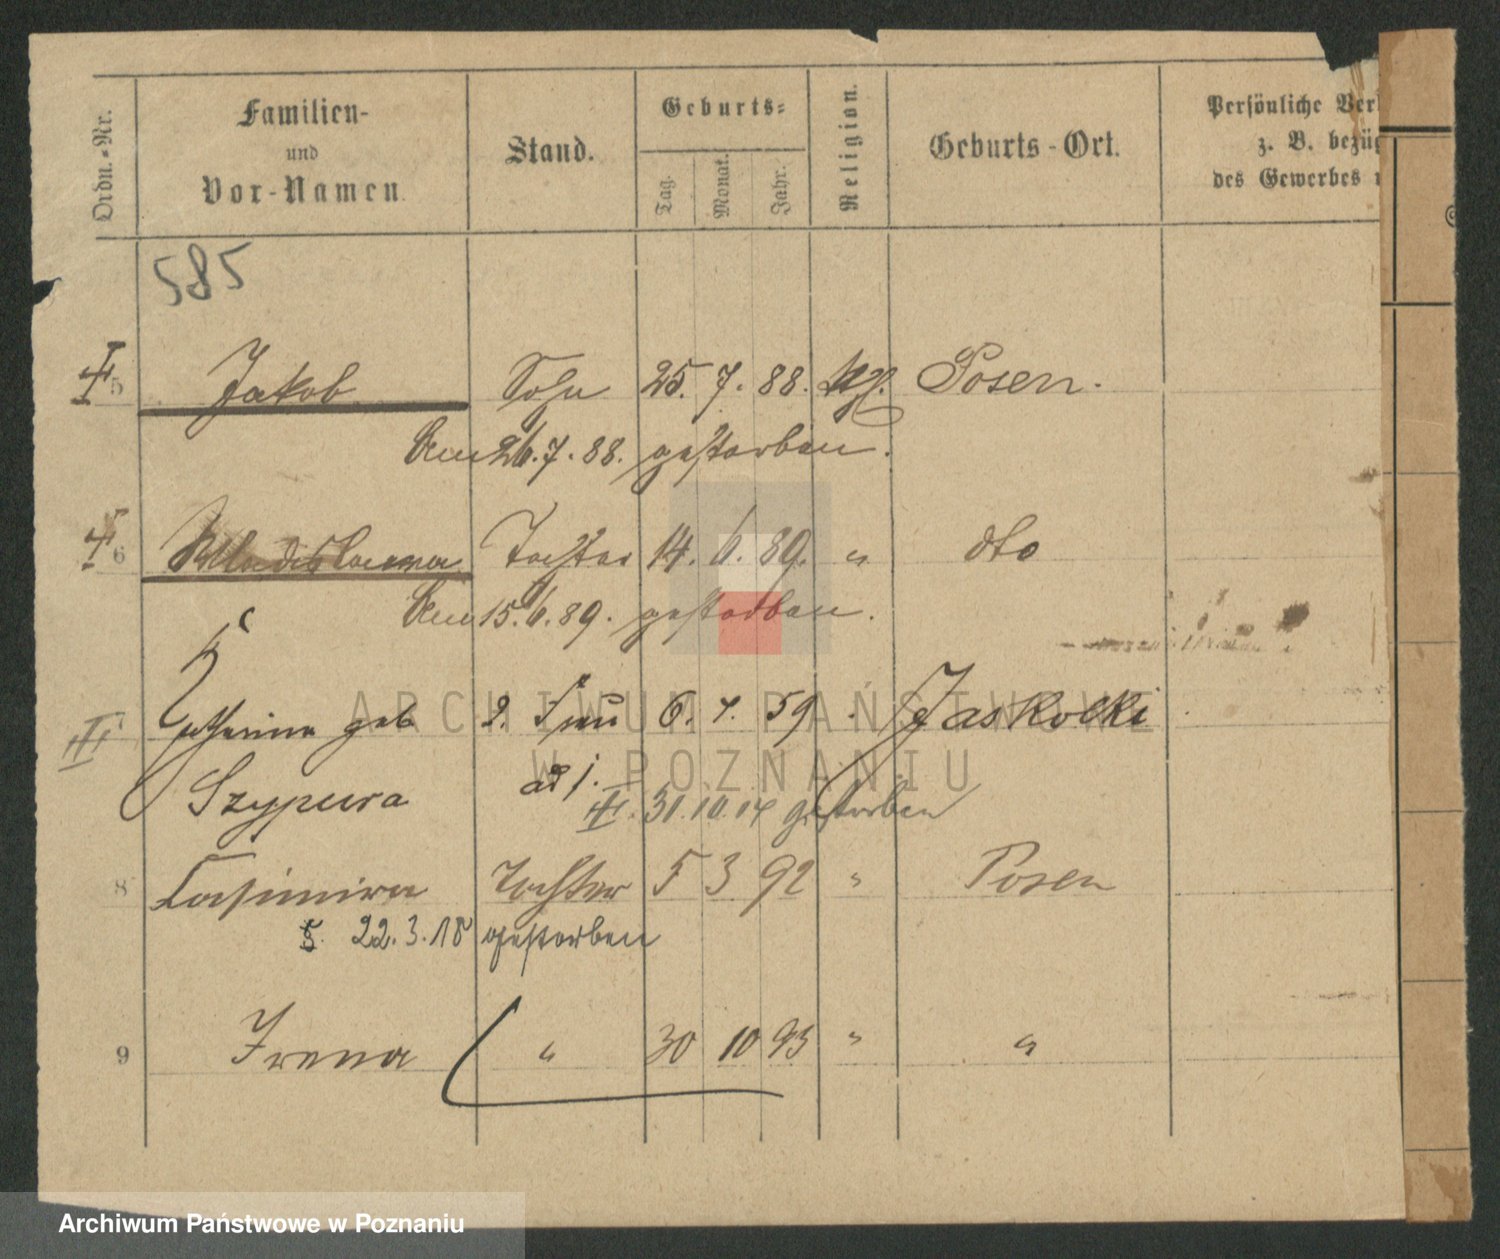 Ordn.-Nr. Familien- und Vor-Namen. Stand. Geburts- Tag. Monat. Jahr. Religion. Geburts-Ort. Persönliche Ver
z. B. bezüg
des Gewerbes
585
5 Jakob Sohn 25. 7. 88. Posen.
Am 26. 7. 88. gestorben.
6 Wladislawa Tochter 14. 6. 89. " dto
Am 15. 6. 89. gestorben.
geb 2. Frau 6. 59 Jaskolki
Szypura ad 1. 31. 10. 14 gestorben
8 Casimira Tochter 5 3 92 " Posen
22. 3. 18 gestorben
9 Irena " 30 10 93 " "
ARCHIWUM PAŃSTWOWE
W POZNANIU
Archiwum Państwowe w Poznaniu